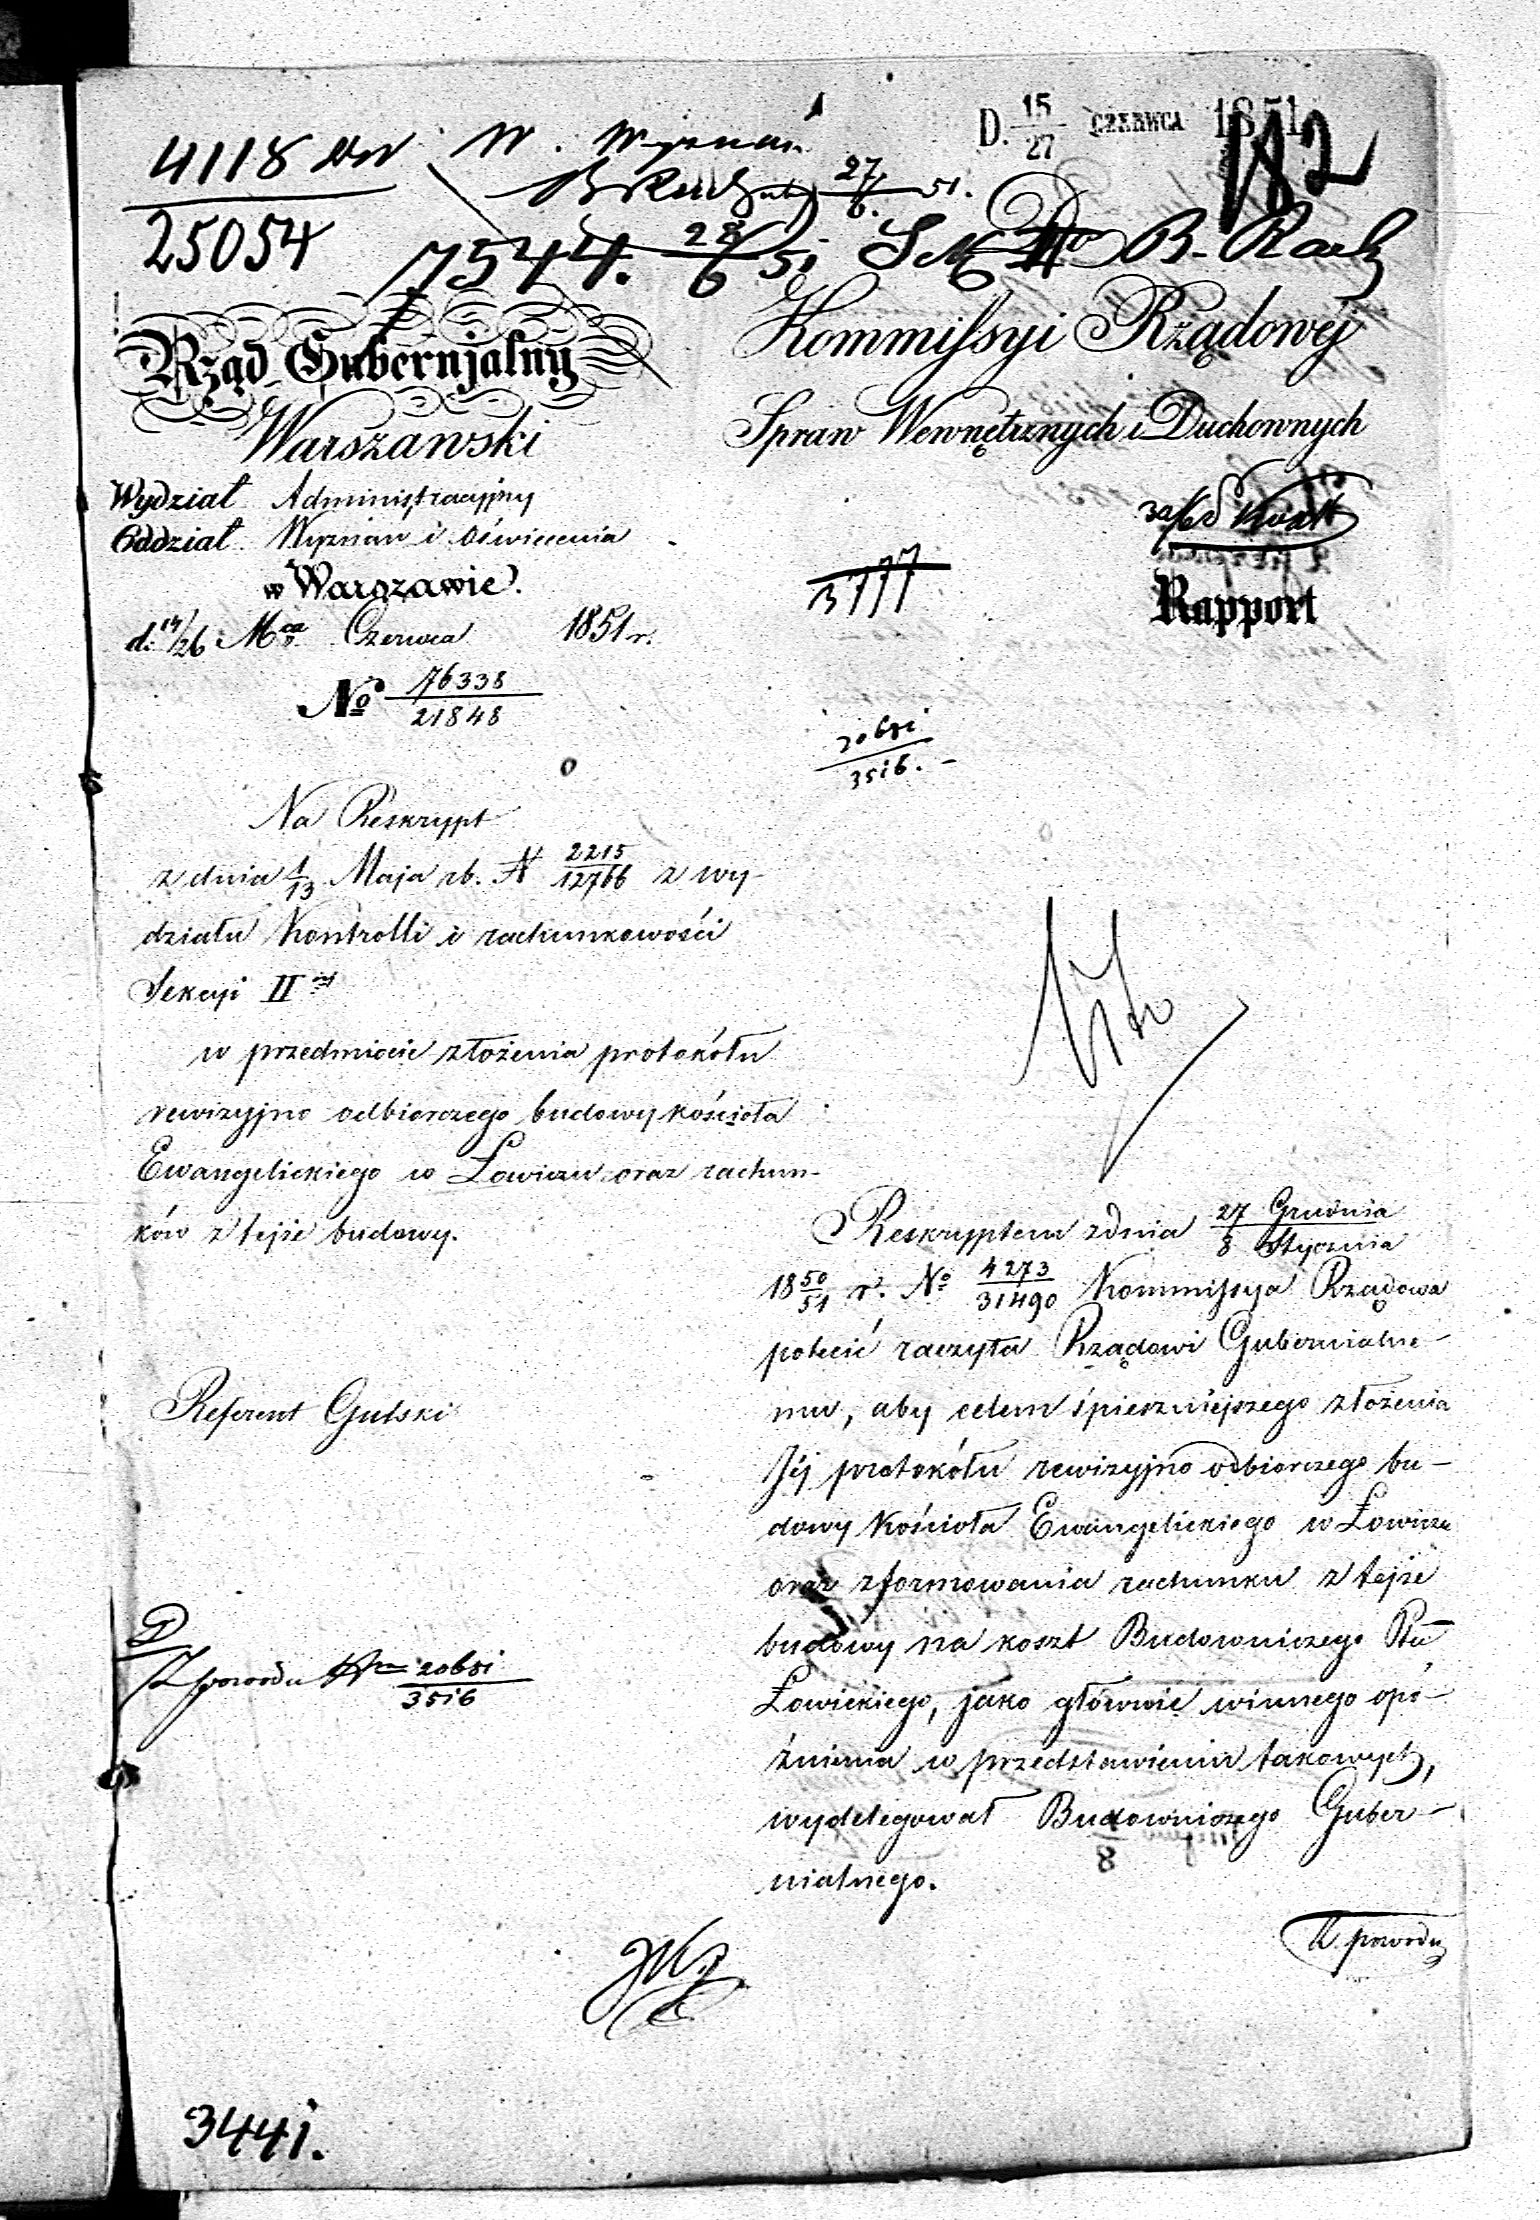 D. 15/27 CZERWCA 1851
182
4118
25054
W. Wyznań
27/6. 51.
7544. 28/6 51
Rząd Gubernjalny
Warszawski
Wydział Administracyjny
Oddział Wyznań i Oświecenia
w Warszawie.
d. 14/26 Mca Czerwca 1851 r.
No 76338/21848
Kommissyi Rządowéj
Spraw Wewnętrznych i Duchownych
Rapport
20651/3516.
Na Reskrypt
z dnia 1/13 Maja rb. N 2215/12766 z wy-
działu Kontrolli i rachunkowości
Sekcyi II
w przedmiocie złożenia protokółu
rewizyjno odbiorczego budowy kościoła
Ewangelickiego w Łowiczu oraz rachun-
ków z tejże budowy.
Referent Gulski
Z powodu N 20651/3516
Reskryptem z dnia 27 Grudnia/8 Stycznia
18 50/51 r. No 4273/31490 Kommissya Rządowa
polecić raczyła Rządowi Gubernialne-
mu, aby celem śpieszniejszego złożenia
Jéj protokółu rewizyjno odbiorczego bu-
dowy Kościoła Ewangelickiego w Łowiczu
oraz zformowania rachunku z tejże
budowy na koszt Budowniczego Ptu
Łowickiego, jako głównie winnego opó-
źnienia w przedstawieniu takowych,
wydelegował Budowniczego Guber-
nialnego.
Z powodu
3441.